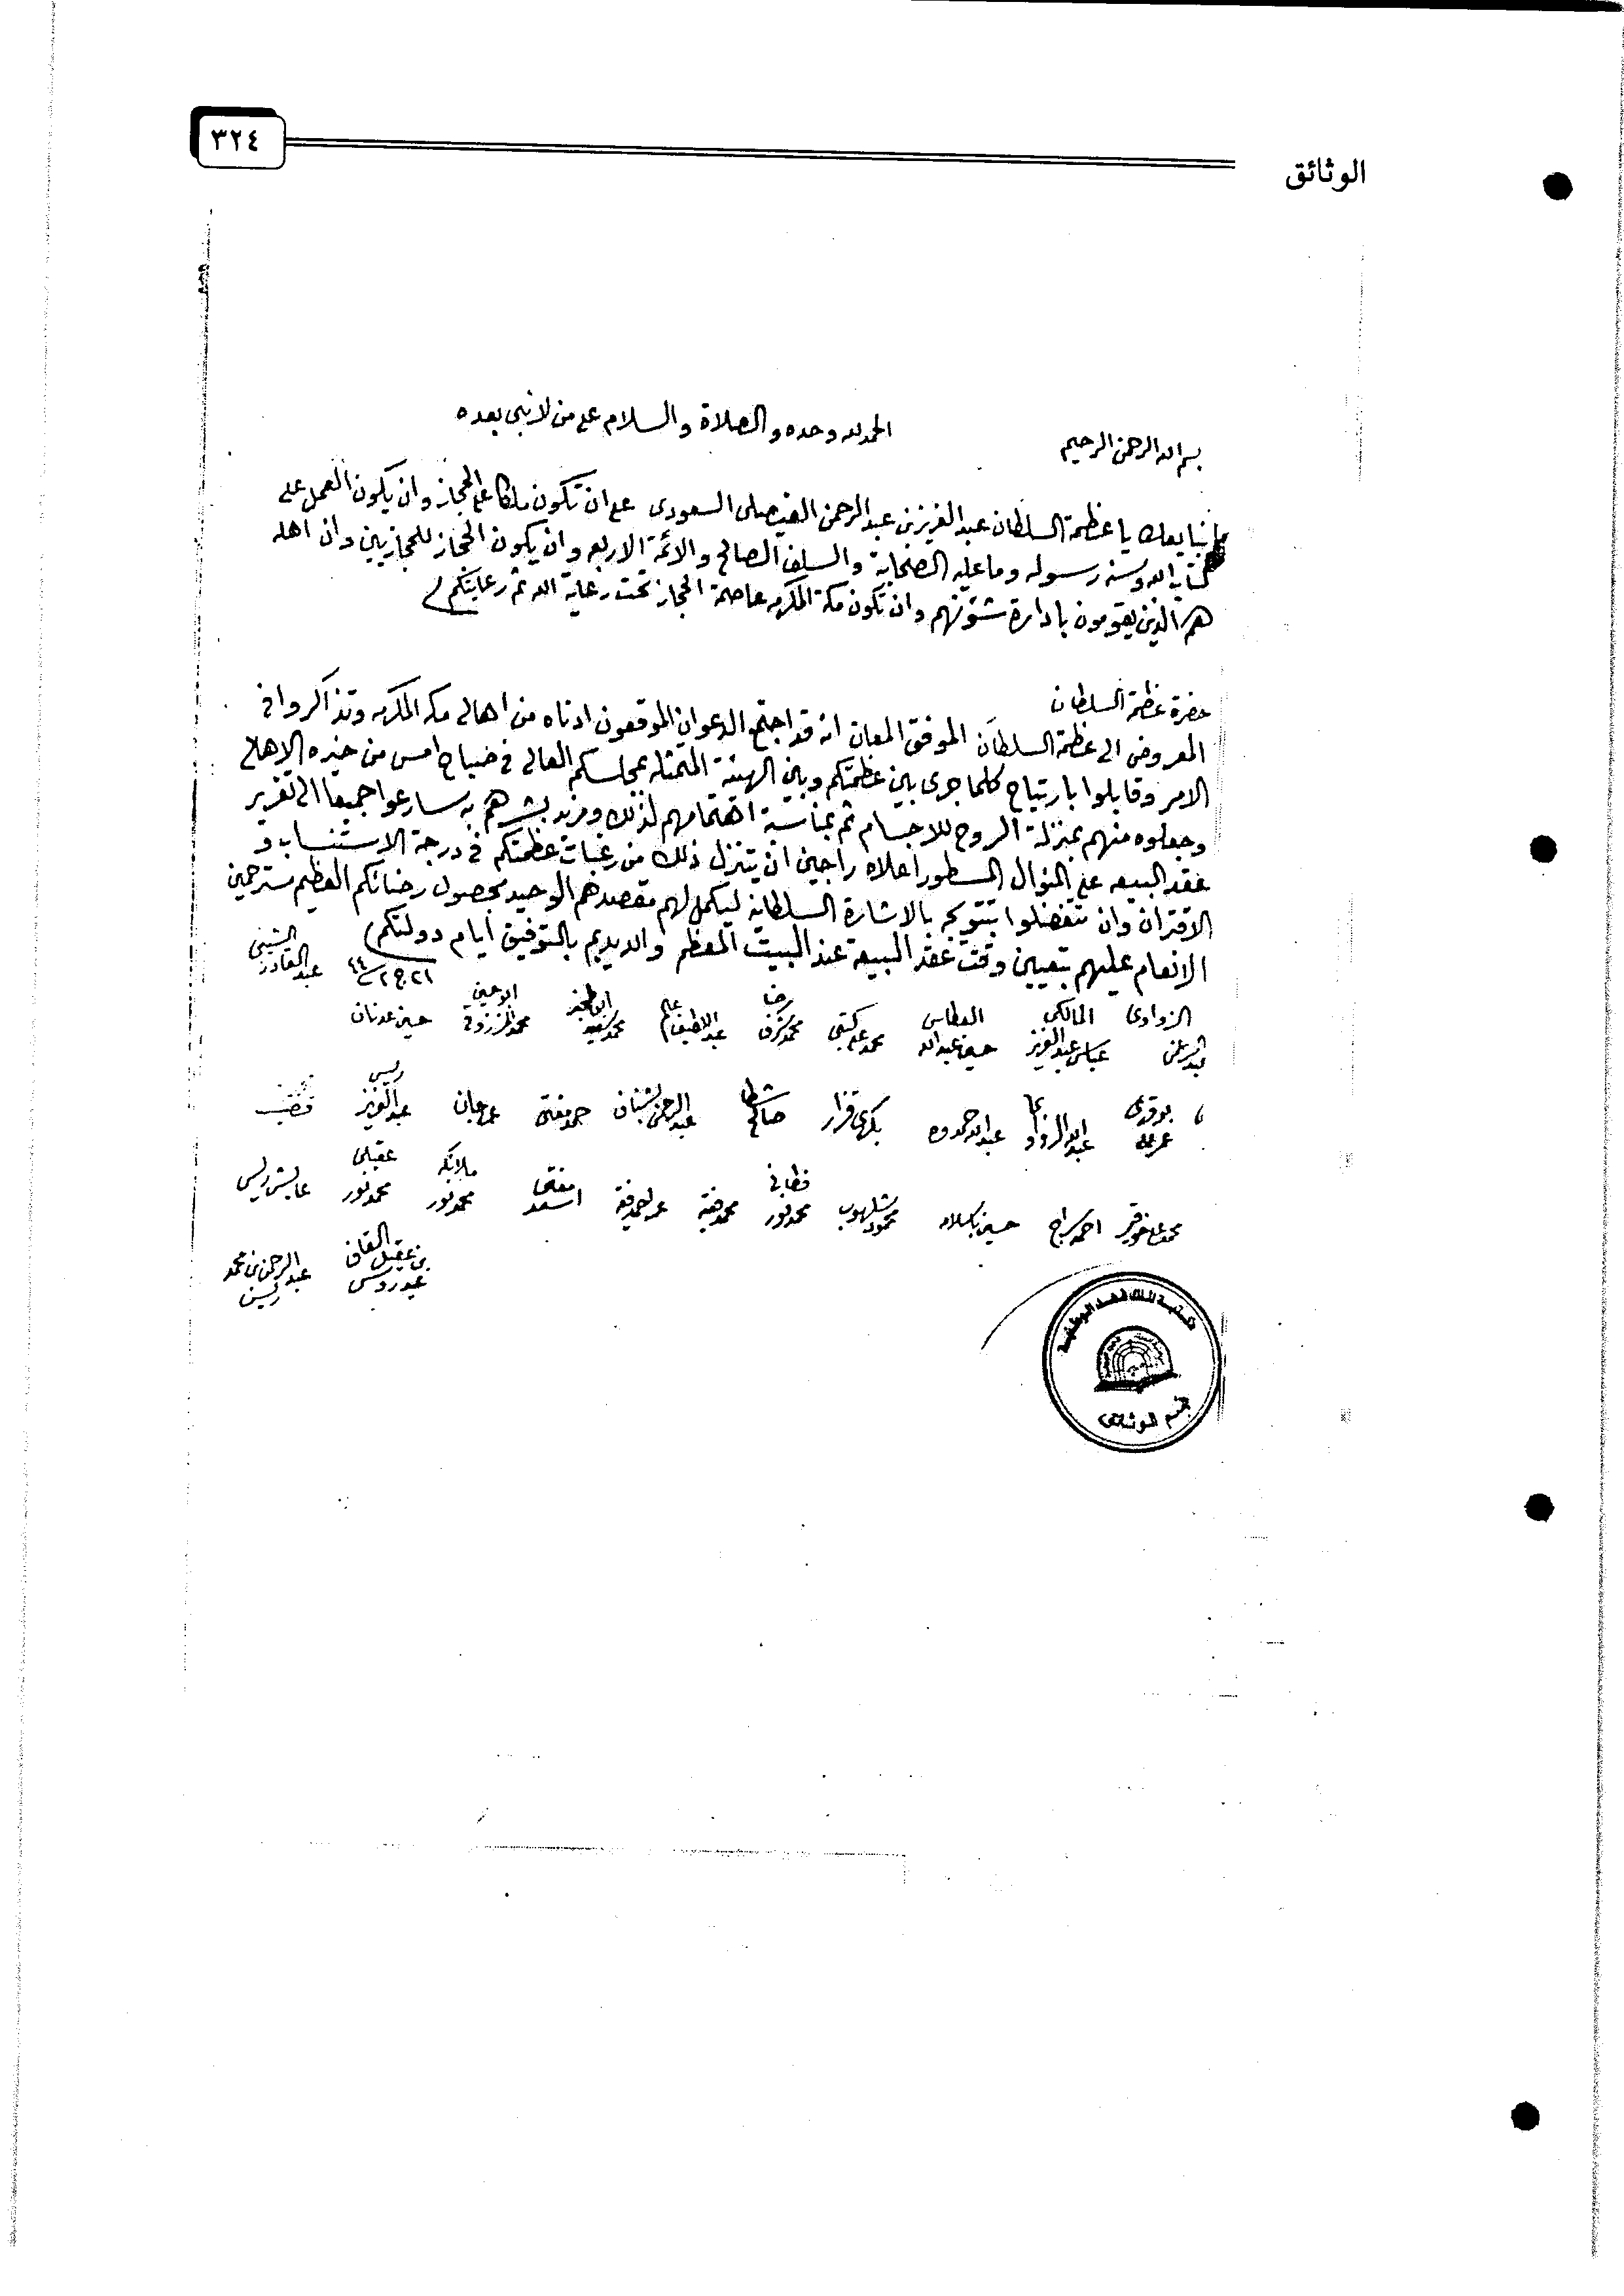 ٣٢٤
الوثائق
بسم الله الرحمن الرحيم الحمد لله وحده والصلاة والسلام على من لا نبي بعده
نبايعك يا عظمة السلطان عبد العزيز بن عبد الرحمن الفيصل السعودي على ان تكون ملكا على الحجاز وان يكون العمل على
كتاب الله وسنة رسوله وما عليه الصحابة والسلف الصالح والائمة الاربعه وان يكون الحجاز للحجازيين وان اهله
هم الذين يقومون بادارة شئونهم وان تكون مكة المكرمه عاصمة الحجاز تحت رعاية الله ثم رعايتكم
حضرة عظمة السلطان
المعروض الى عظمة السلطان الموفق المعان انه قد اجتمع الداعون الموقعون ادناه من اهالي مكه المكرمه وتذاكروا في
الامر وقابلوا بارتياح كلما جرى بين عظمتكم وبين الهيئة المتمثله بمجلسكم العالي في صباح امس من خيره الاهالي
وجعلوه منهم بمنزلة الروح للاجسام ثم بمناسبة اهتمامهم لذلك ومزيد بشرهم به سارعوا جميعا الى تقرير
عقد البيعه على المنوال المسطور اعلاه راجين ان يتنزل ذلك من رغبات عظمتكم في درجة الاستنساب و
الاقتران وان تتفضلوا بتتويجه بالاشارة السلطانيه ليكمل لهم مقصدهم الوحيد بحصول رضائكم العظيم مسترحمين
الانعام عليهم بتعيين وقت عقد البيعة عند البيت المعظم والله يديم بالتوفيق أيام دولتكم
عبد القادر الشيبي
الزواوي عباس عبد العزيز المالكي حسين عبد الله العطاس محمد علي كتبي محمد شرف رضا عبد اللطيف عالم محمد سعيد ابو الخير محمد المرزوقي ابو حسين حسين عدنان
بوقري عبد الله حمدوه بكري قزاز صالح شطا عبد الرحمن بشناق عمر جان عبد العزيز ريس
محمد علي خوقير احمد سراج حسين باسلامه محمود شلهوب محمد نور فطاني اسعد مفتي محمد نور ملائكه محمد نور عايش ريس
عيدروس بن عقيل السقاف عبد الرحمن بن محمد ياسين
مكتبة الملك فهد الوطنية
قسم الوثائق